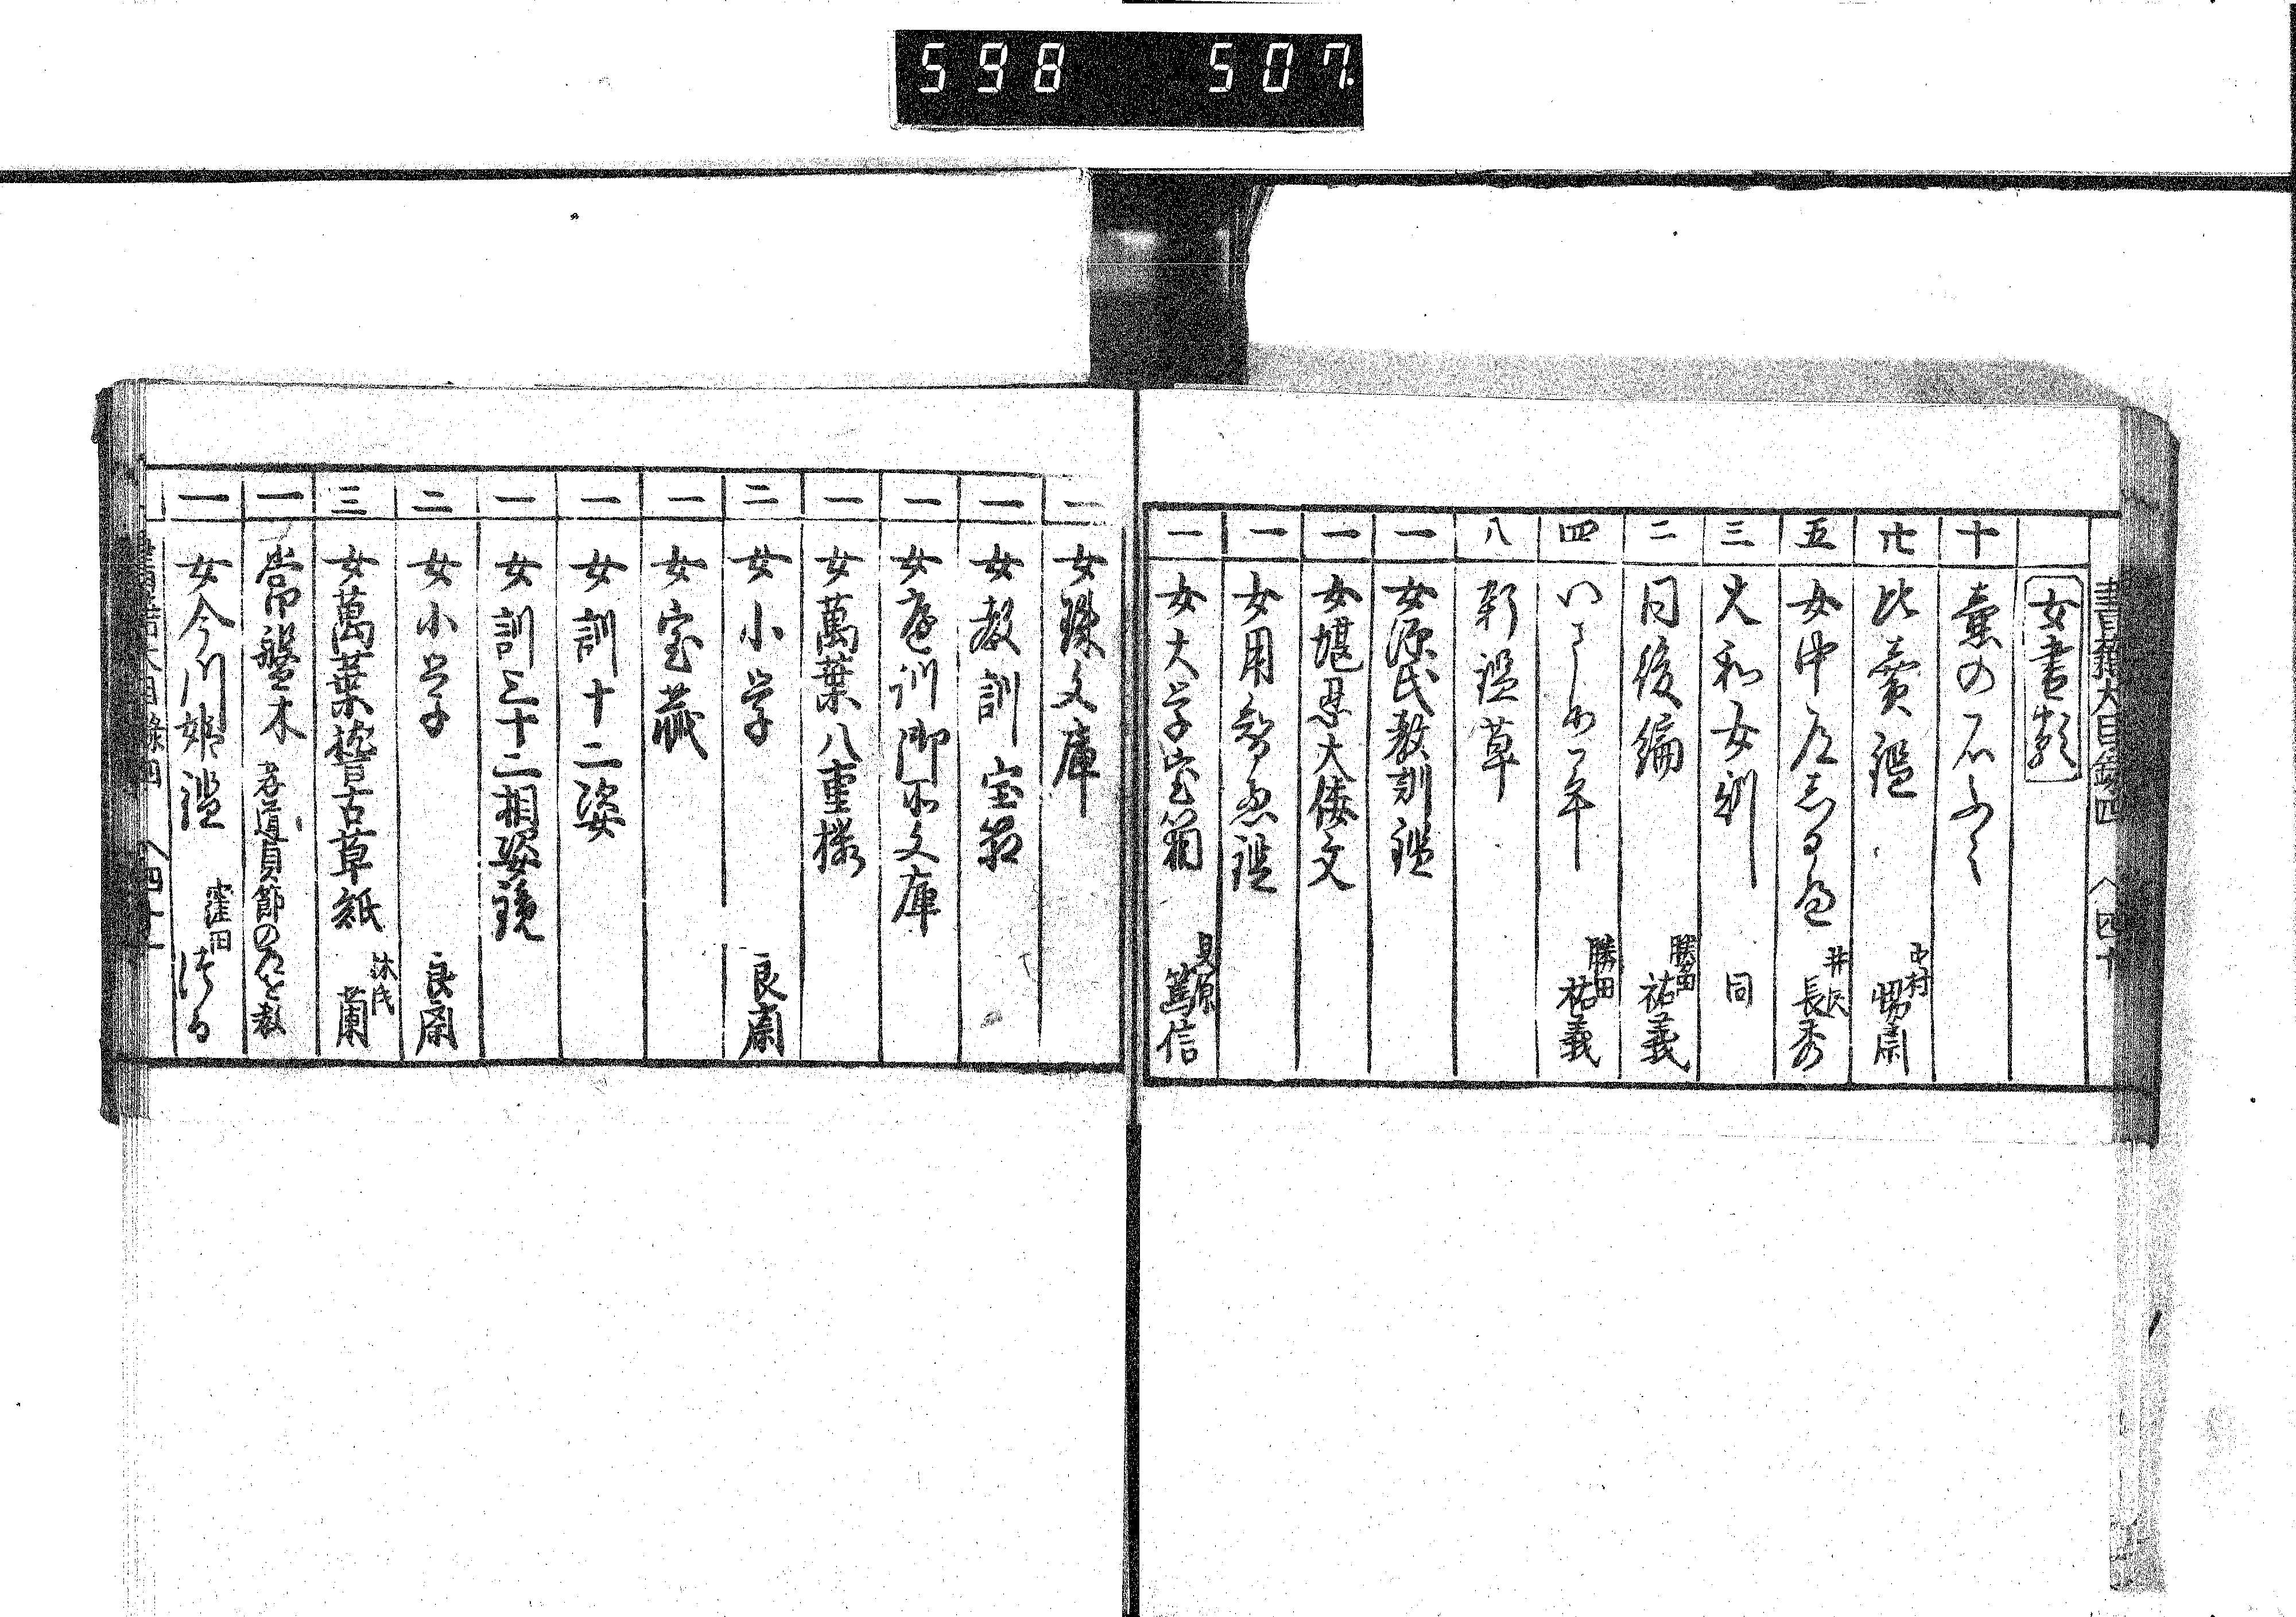 598 507
書籍大目録四 四十
女書類
十 薫の
廿 比賣鑑 中村惕斎
五 女中道志る邊 井沢長秀
三 大和女訓 同
二 同後編 勝田祐義
四 勝田祐義
八 新鑑草
一 女源氏教訓鑑
一 女堪忍大倭文
一 女用智恵鑑
一 女大学宝箱 貝原篤信
一 女珠文庫
一 女教訓宝箱
一 女庭訓御所文庫
一 女萬葉八重櫻
二 女小学 良斎
一 女宝蔵
一 女訓十二姿
一 女訓三十二相姿鏡
二 女小学 良斎
三 女萬葉稽古草紙 沐氏蘭
一 常盤木 孝道貞節の道を教
一 女今川姫鑑 窪田つる